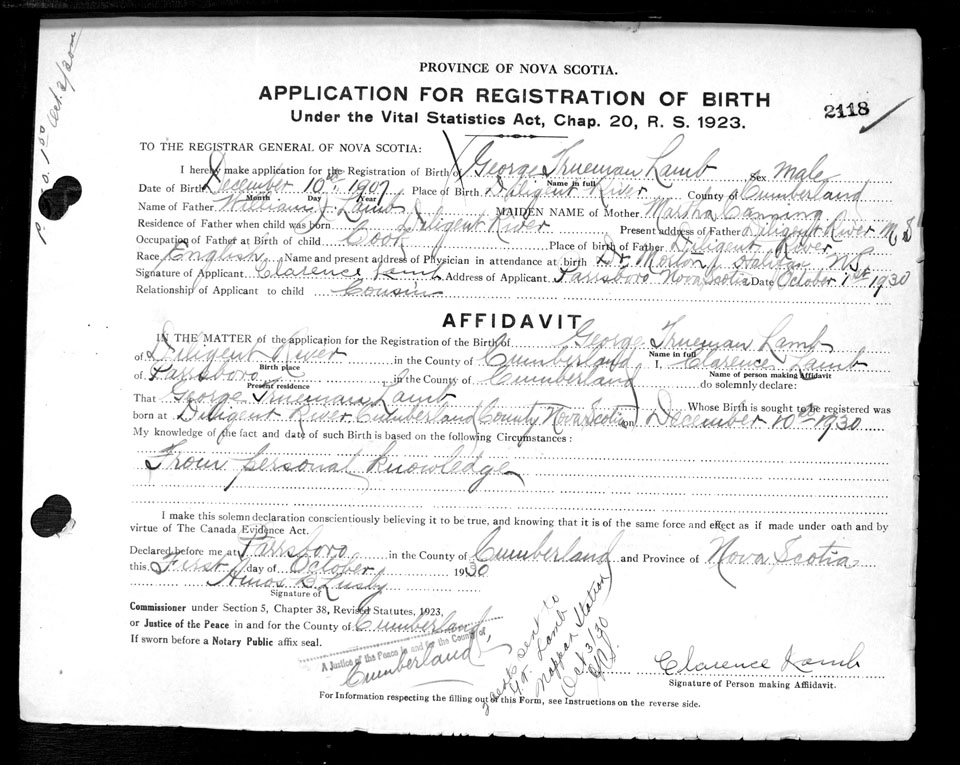 PROVINCE OF NOVA SCOTIA.
APPLICATION FOR REGISTRATION OF BIRTH
2118
Under the Vital Statistics Act, Chap. 20, R. S. 1923.
P. O. 1.00 Oct. 2/30
TO THE REGISTRAR GENERAL OF NOVA SCOTIA:
I hereby make application for the Registration of Birth of George Trueman Lamb Sex Male
Name in full
Date of Birth December 10th, 1907 Place of Birth Diligent River County of Cumberland
Month Day Year
Name of Father William J. Lamb MAIDEN NAME of Mother Martha Canning
Residence of Father when child was born Diligent River Present address of Father Diligent River N S
Occupation of Father at Birth of child Cook Place of birth of Father Diligent River
Race English Name and present address of Physician in attendance at birth Dr Morton, Halifax N.S.
Signature of Applicant Clarence Lamb Address of Applicant Parrsboro Nova Scotia Date October 1st 1930
Relationship of Applicant to child Cousin
AFFIDAVIT
IN THE MATTER of the application for the Registration of the Birth of George Trueman Lamb
Name in full
of Diligent River in the County of Cumberland I, Clarence Lamb
Birth place Name of person making Affidavit
of Parrsboro, in the County of Cumberland do solemnly declare:
Present residence
That George Trueman Lamb Whose Birth is sought to be registered was
born at Diligent River Cumberland County Nova Scotia on December 10th 1930
My knowledge of the fact and date of such Birth is based on the following Circumstances:
From personal knowledge
I make this solemn declaration conscientiously believing it to be true, and knowing that it is of the same force and effect as if made under oath and by
virtue of The Canada Evidence Act.
Declared before me at Parrsboro in the County of Cumberland and Province of Nova Scotia
this First day of October 1930
Amos B. Lusby
Signature of
Commissioner under Section 5, Chapter 38, Revised Statutes, 1923,
or Justice of the Peace in and for the County of Cumberland
If sworn before a Notary Public affix seal.
A Justice of the Peace in and for the County of
Cumberland
sent to
G. T. Lamb
Maccan Station
Oct 3/30
Clarence Lamb
Signature of Person making Affidavit.
For Information respecting the filling out of this Form, see Instructions on the reverse side.